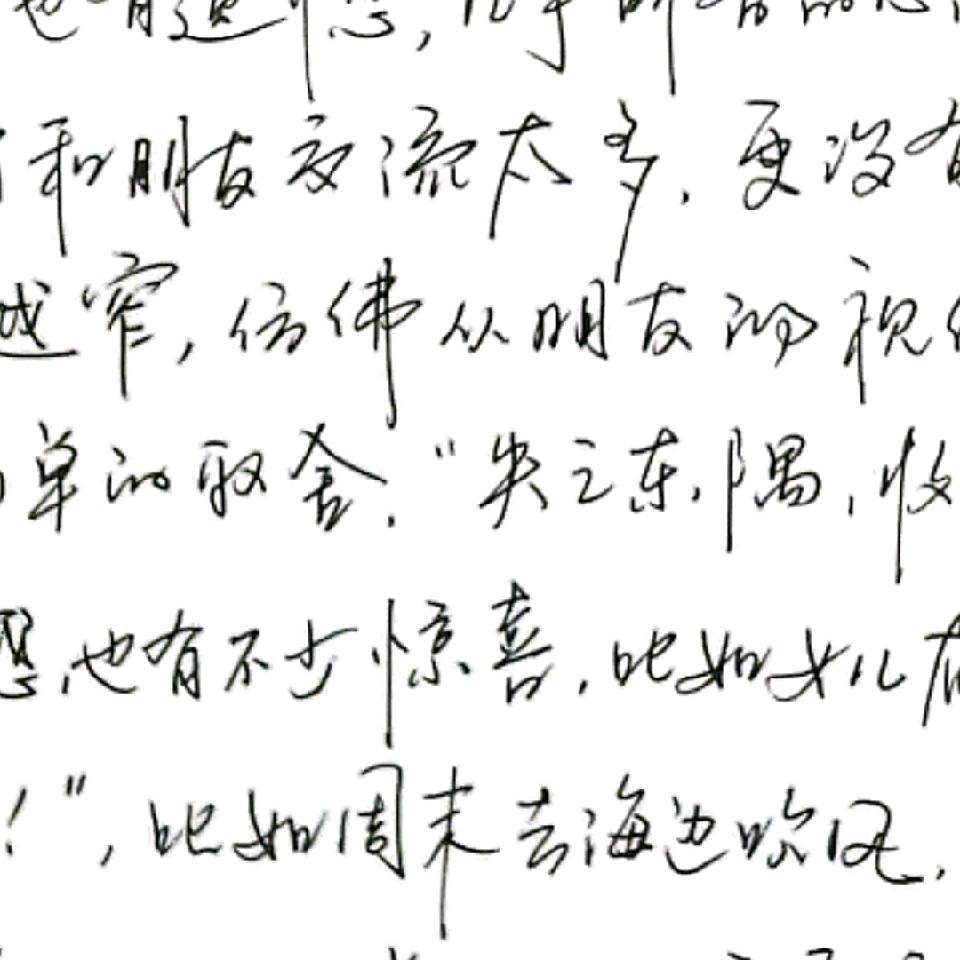 也有遗憾,
和朋友交流太多,更没有
越窄,仿佛从朋友的视
单的取舍."失之东隅,收
也有不少惊喜,比如女儿在
!",比如周末去海边吹风,